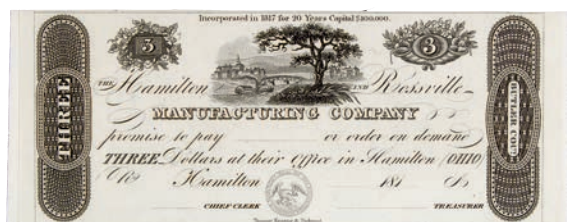 Incorporated in 1817 for 20 Years Capital $100,000.
3
3
THE Hamilton AND Rossville
MANUFACTURING COMPANY
promise to pay or order on demand
THREE Dollars at their Office in Hamilton (OHIO)
Hamilton 181
CHIEF CLERK TREASURER
THREE
BUTLER COY.